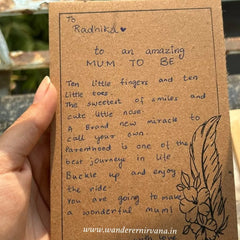 To
Radhika
to an amazing
MUM TO BE
Ten little fingers and ten
little toes.
The sweetest of smiles and
cute little nose.
A Brand new miracle to
call your own.
Parenthood is one of the
best journeys in life
Buckle up and enjoy
the ride.
You are going to make
a wonderful mum!
www.wanderernirvana.in